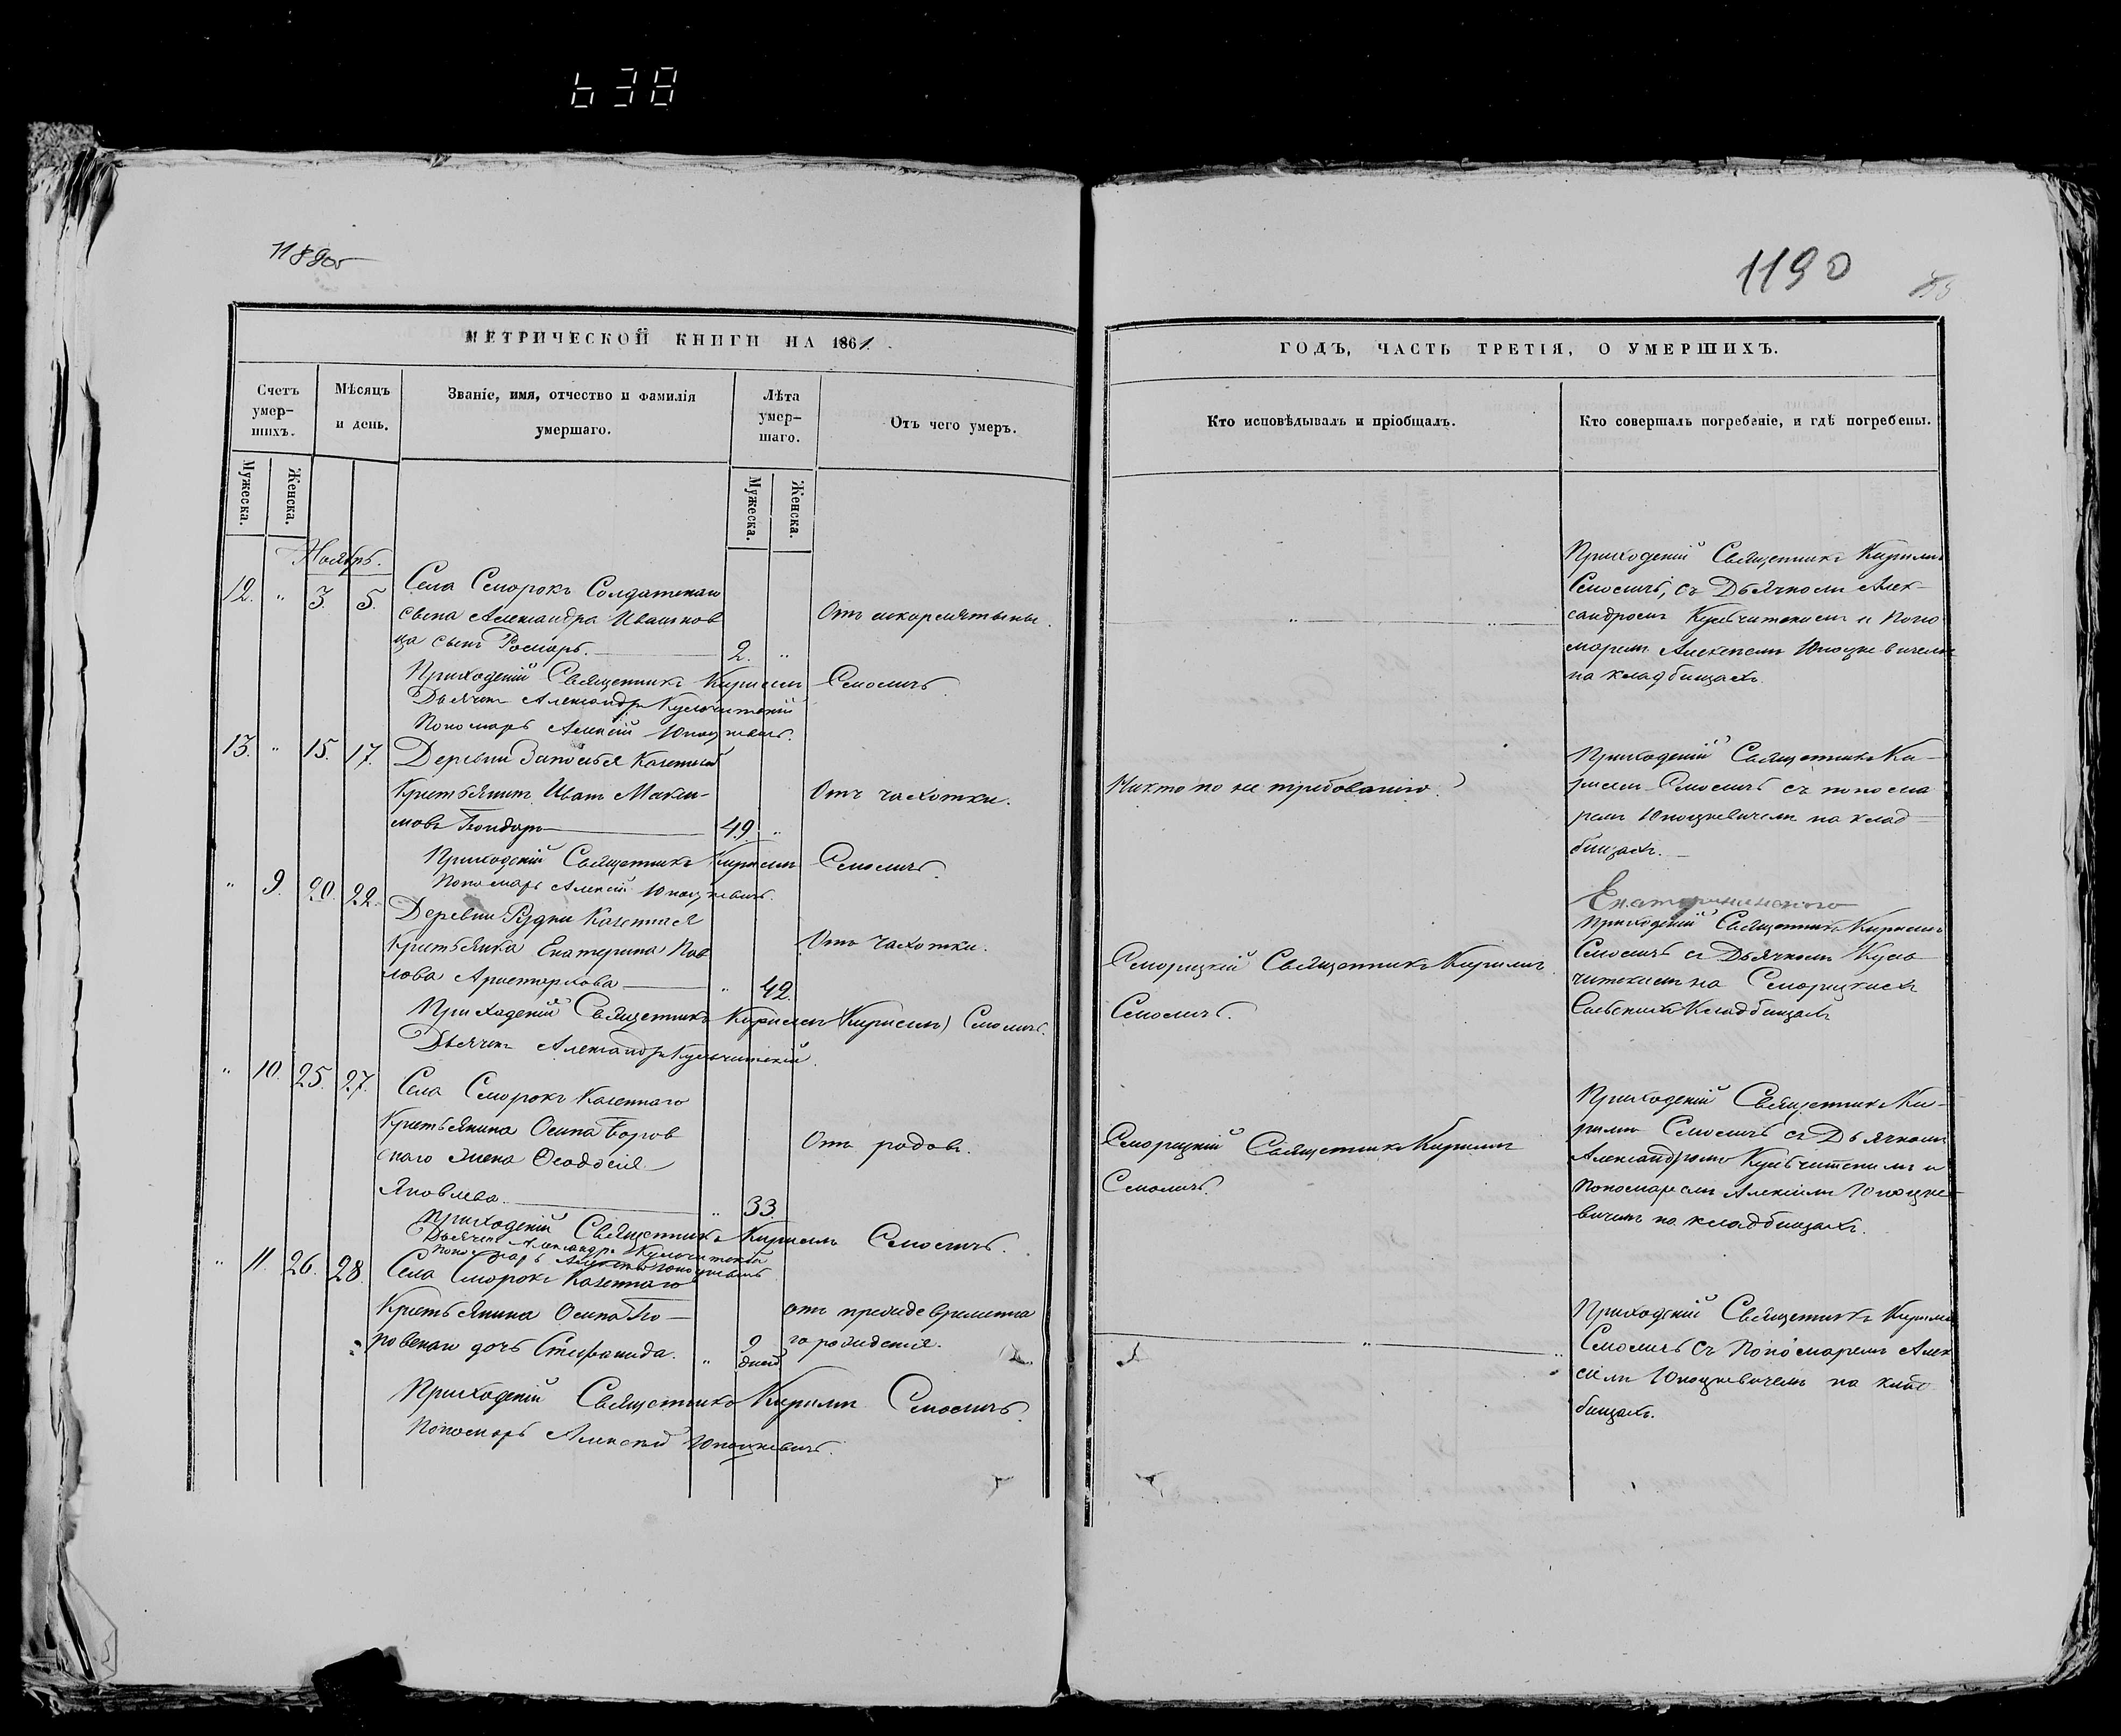 638
1189об
МЕТРИЧЕСКОЙ КНИГИ НА 1861.
Счетъ умер-шихъ.
Мѣсяцъ и день.
Званіе, имя, отчество и фамилія умершаго.
Лѣта умер-шаго.
Отъ чего умеръ.
Мужеска.
Женска.
Мужеска.
Женска.
Ноябрь.
12. " 3. 5. Села Сморокъ Солдатскаго
сына Александра Ивашкев
ца сынъ 2. "
Приходскій Священникъ Кириллъ Смоличъ.
Дьячекъ Александръ Кульчитскій
Пономарь Алексій Юноцкевичъ.
13. " 15. 17. Деревни Заполья Казенный
Крестьянинъ Иванъ Макси- Отъ чахотки.
мовъ Бондарь 49. "
Приходскій Священникъ Кириллъ Смоличъ.
Пономарь Алексій Юноцкевичъ.
" 9. 20. 22. Деревни Рудни Казенная
Крестьянка Екатерина Пав Отъ чахотки.
лова Аристархова " 42.
Приходскій Священникъ Кириллъ (Кириллъ) Смоличъ.
Дьячекъ Александръ Кульчитскій.
" 10. 25. 27. Села Сморокъ Казеннаго
Крестьянина Осипа Боров Отъ родовъ.
скаго жена Ѳеодосія
Яковлева. " 33.
Приходскій Священникъ Кириллъ Смоличъ.
Дьячекъ Александръ Кульчитскій
Пономарь Алексій Юноцкевичъ
" 11. 26. 28. Села Сморокъ Казеннаго
Крестьянина Осипа Бо- отъ преждевременна
ровскаго дочь Стефанида. " 2 дней го рожденія.
Приходскій Священникъ Кириллъ Смоличъ.
Пономарь Алексій Юноцкевичъ.
1190
ГОДЪ, ЧАСТЬ ТРЕТІЯ, О УМЕРШИХЪ.
Кто исповѣдывалъ и пріобщалъ.
Кто совершалъ погребеніе, и гдѣ погребены.
Приходскій Священникъ Кириллъ
Смоличъ, съ Дьячкомъ Алек-
сандромъ Кульчитскимъ и Поно
маремъ Алексіемъ Юноцкевичемъ
на кладбищахъ.
Приходскій Священникъ Ки-
Никто по не требованію. риллъ Смоличъ съ понома
ремъ Юноцкевичемъ на клад-
бищахъ.
Екатерининского
Приходскій Священникъ Кириллъ
Сморицкій Священникъ Кириллъ Смоличъ съ Дьячкомъ Куль
читскимъ на Сморицкихъ
Смоличъ. Сельскихъ Кладбищахъ
Приходскій Священникъ Ки-
Сморицкій Священникъ Кириллъ риллъ Смоличъ съ Дьячкомъ
Александромъ Кульчитскимъ и
Смоличъ. Пономаремъ Алексіемъ Юноцке-
вичемъ на кладбищахъ.
Приходскій Священникъ Кириллъ
" " Смоличъ съ Пономаремъ Алек
сіемъ Юноцкевичемъ на клад
бищахъ.